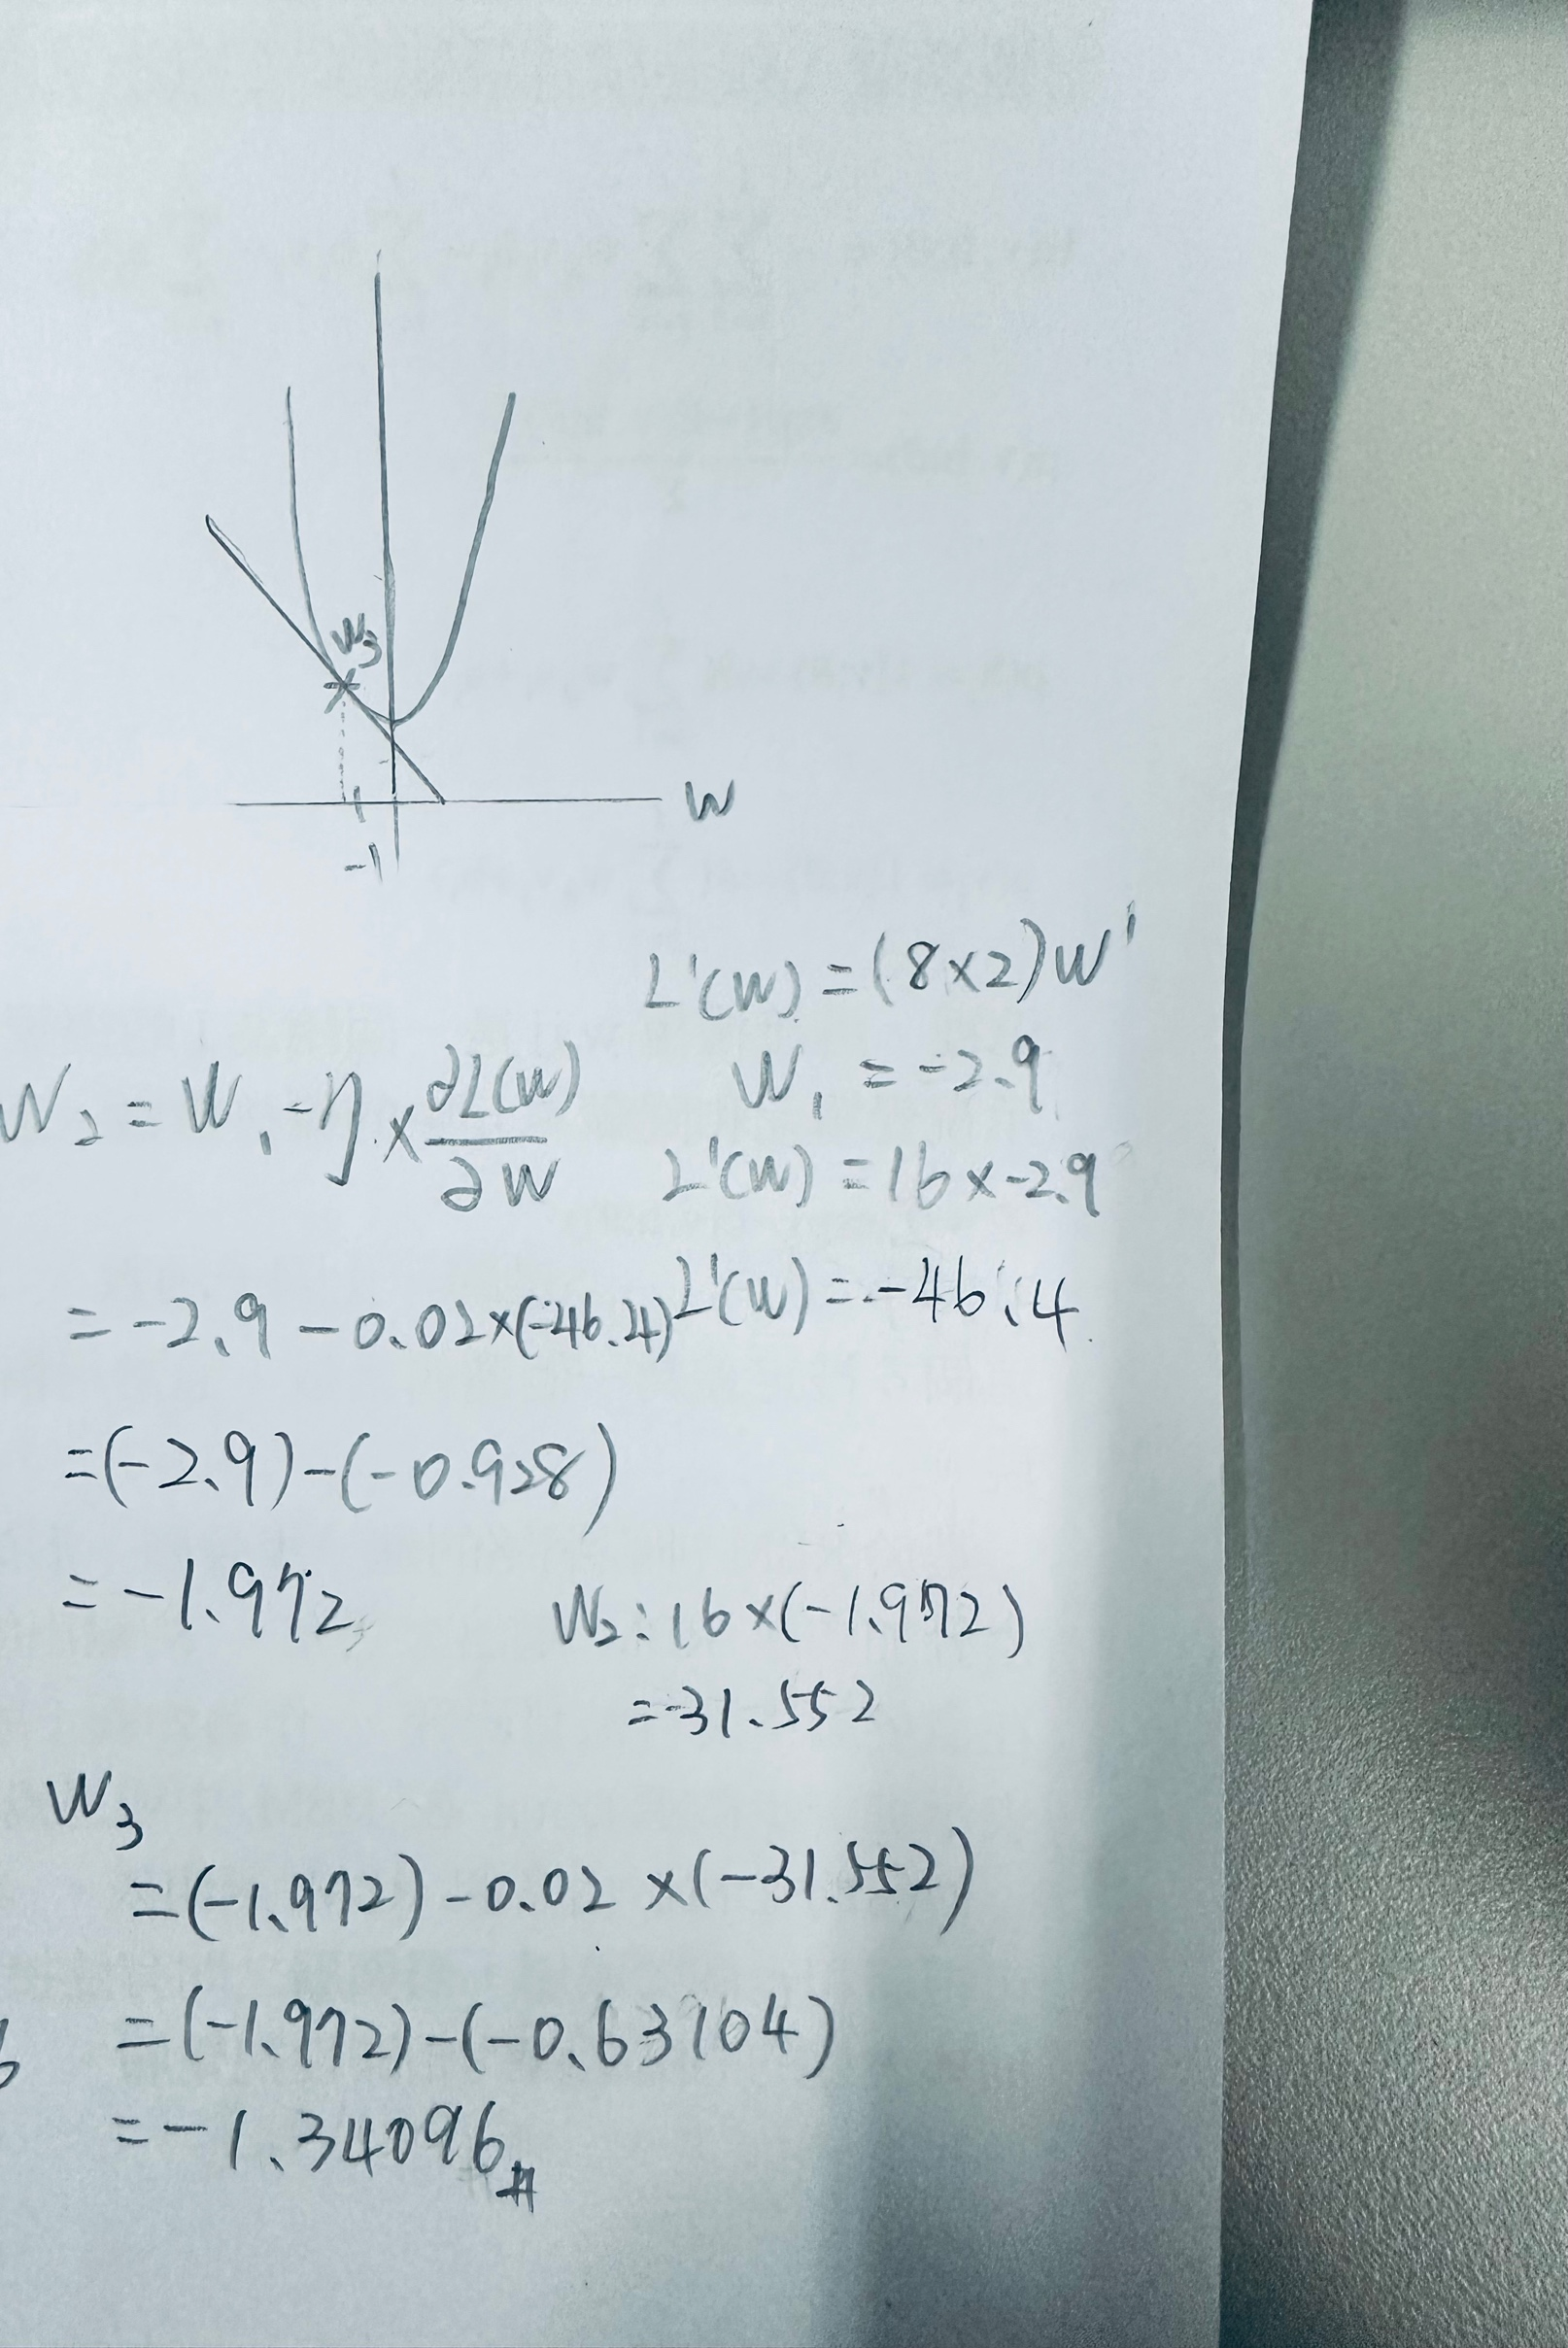 W₃
W
-1
L'(W) = (8×2)W'
W₂ = W₁ - η × ∂L(W)/∂W
W₁ = -2.9
L'(W) = 16 × -2.9
= -2.9 - 0.02×(-46.4)
L'(W) = -46.4
= (-2.9) - (-0.928)
= -1.972
W₂: 16×(-1.972)
= -31.552
W₃
= (-1.972) - 0.02 × (-31.552)
= (-1.972) - (-0.63104)
= -1.34096 #